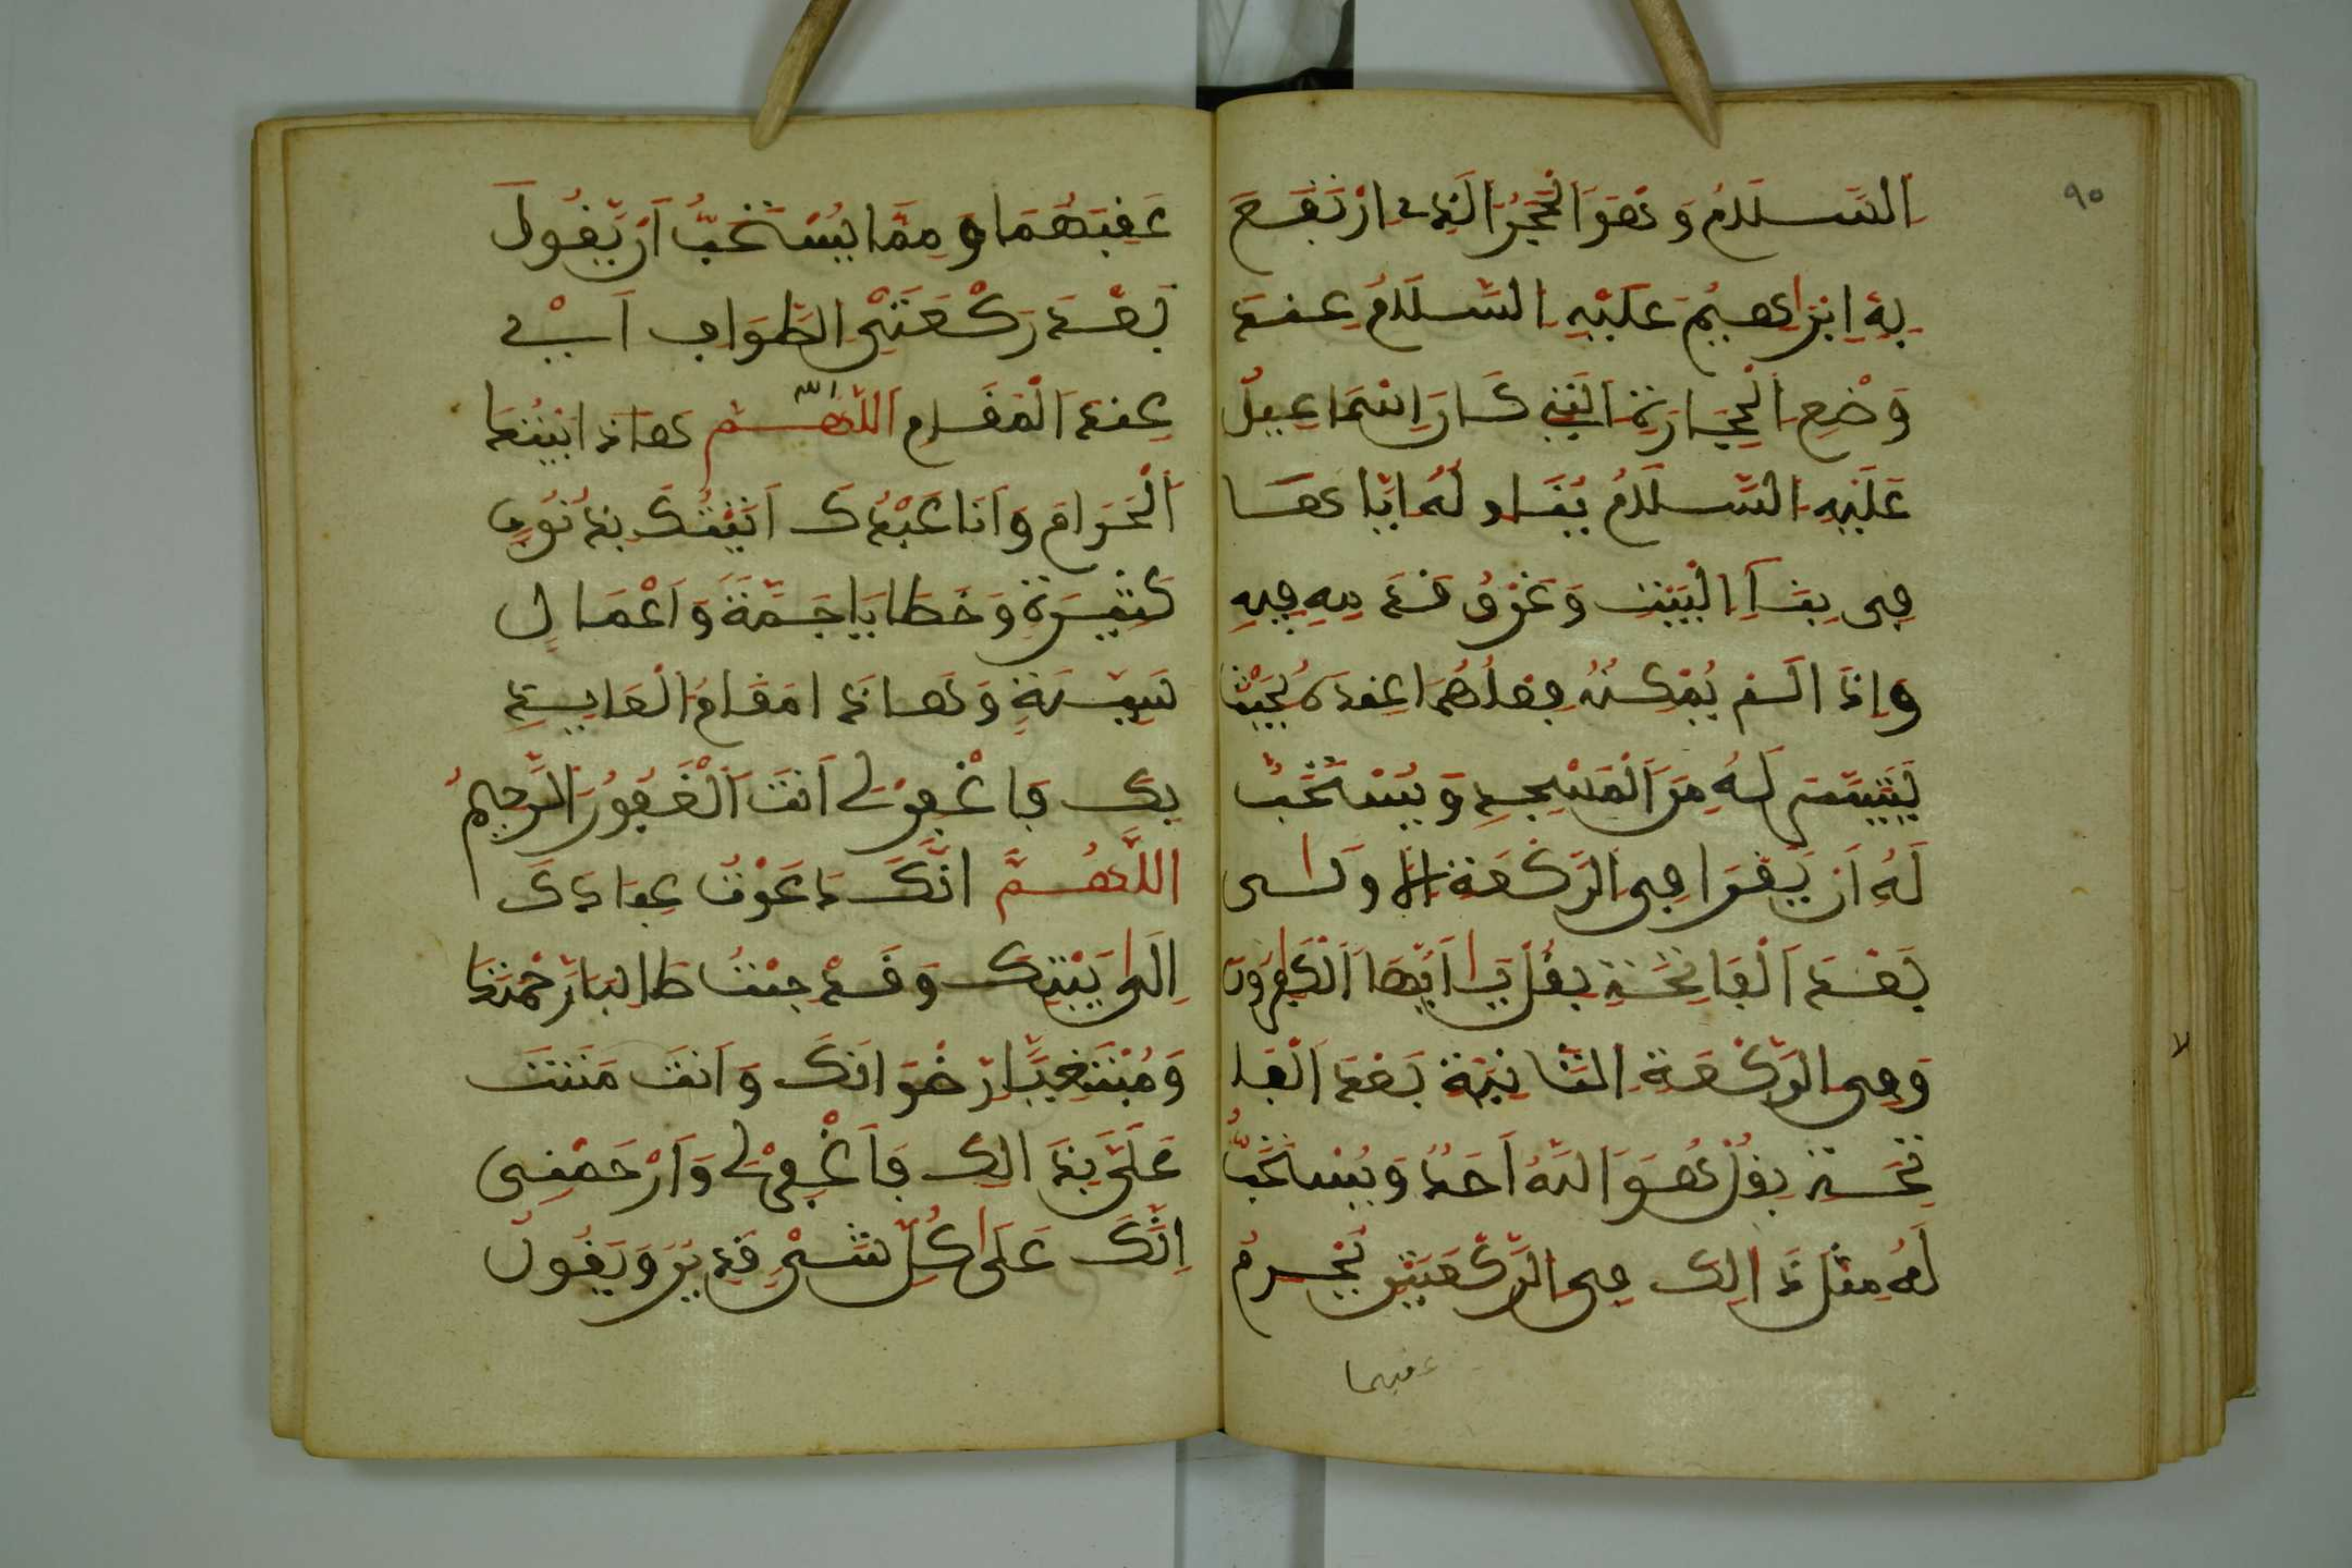 ٩٠
السَّلَامُ وَهُوَ الْحَجَرُ الَّذِي ارْتَفَعَ
بِهِ إِبْرَاهِيمُ عَلَيْهِ السَّلَامُ عِنْدَ
وَضْعِ الْحِجَارَةِ الَّتِي كَانَ إِسْمَاعِيلُ
عَلَيْهِ السَّلَامُ يُنَاوِلُهُ إِيَّاهَا
فِي بِنَاءِ الْبَيْتِ وَغَرْقُ قَدَمَيْهِ فِيهِ
وَإِذَا لَمْ يُمْكِنْهُ فِعْلُهُمَا عِنْدَهُ فَحَيْثُمَا
تَيَسَّرَ لَهُ مِنَ الْمَسْجِدِ وَيُسْتَحَبُّ
لَهُ أَنْ يَقْرَأَ فِي الرَّكْعَةِ الْأُولَى
بَعْدَ الْفَاتِحَةِ بِقُلْ يَا أَيُّهَا الْكَافِرُونَ
وَفِي الرَّكْعَةِ الثَّانِيَةِ بَعْدَ الْفَا
تِحَةِ بِقُلْ هُوَ اللَّهُ أَحَدٌ وَيُسْتَحَبُّ
لَهُ مِثْلُ ذَالِكَ فِي الرَّكْعَتَيْنِ
عقبهما
عَقِبَهُمَا وَمِمَّا يُسْتَحَبُّ أَنْ يَقُولَ
بَعْدَ رَكْعَتَيِ الطَّوَافِ أَيْ
عِنْدَ الْمَقَامِ اللَّهُمَّ هَاذَا بَيْتُكَ
الْحَرَامُ وَأَنَا عَبْدُكَ أَتَيْتُكَ بِذُنُوبٍ
كَثِيرَةٍ وَخَطَايَا جَمَّةٍ وَأَعْمَالٍ
سَيِّئَةٍ وَهَاذَا مَقَامُ الْعَايِذِ
بِكَ فَاغْفِرْ لِي أَنْتَ الْغَفُورُ الرَّحِيمُ
اللَّهُمَّ إِنَّكَ دَعَوْتَ عِبَادَكَ
إِلَى بَيْتِكَ وَقَدْ جِئْتُ طَالِبًا رَحْمَتَكَ
وَمُبْتَغِيًا رِضْوَانَكَ وَأَنْتَ مَنَنْتَ
عَلَيَّ بِذَالِكَ فَاغْفِرْ لِي وَارْحَمْنِي
إِنَّكَ عَلَى كُلِّ شَيْءٍ قَدِيرٌ وَيَقُولُ